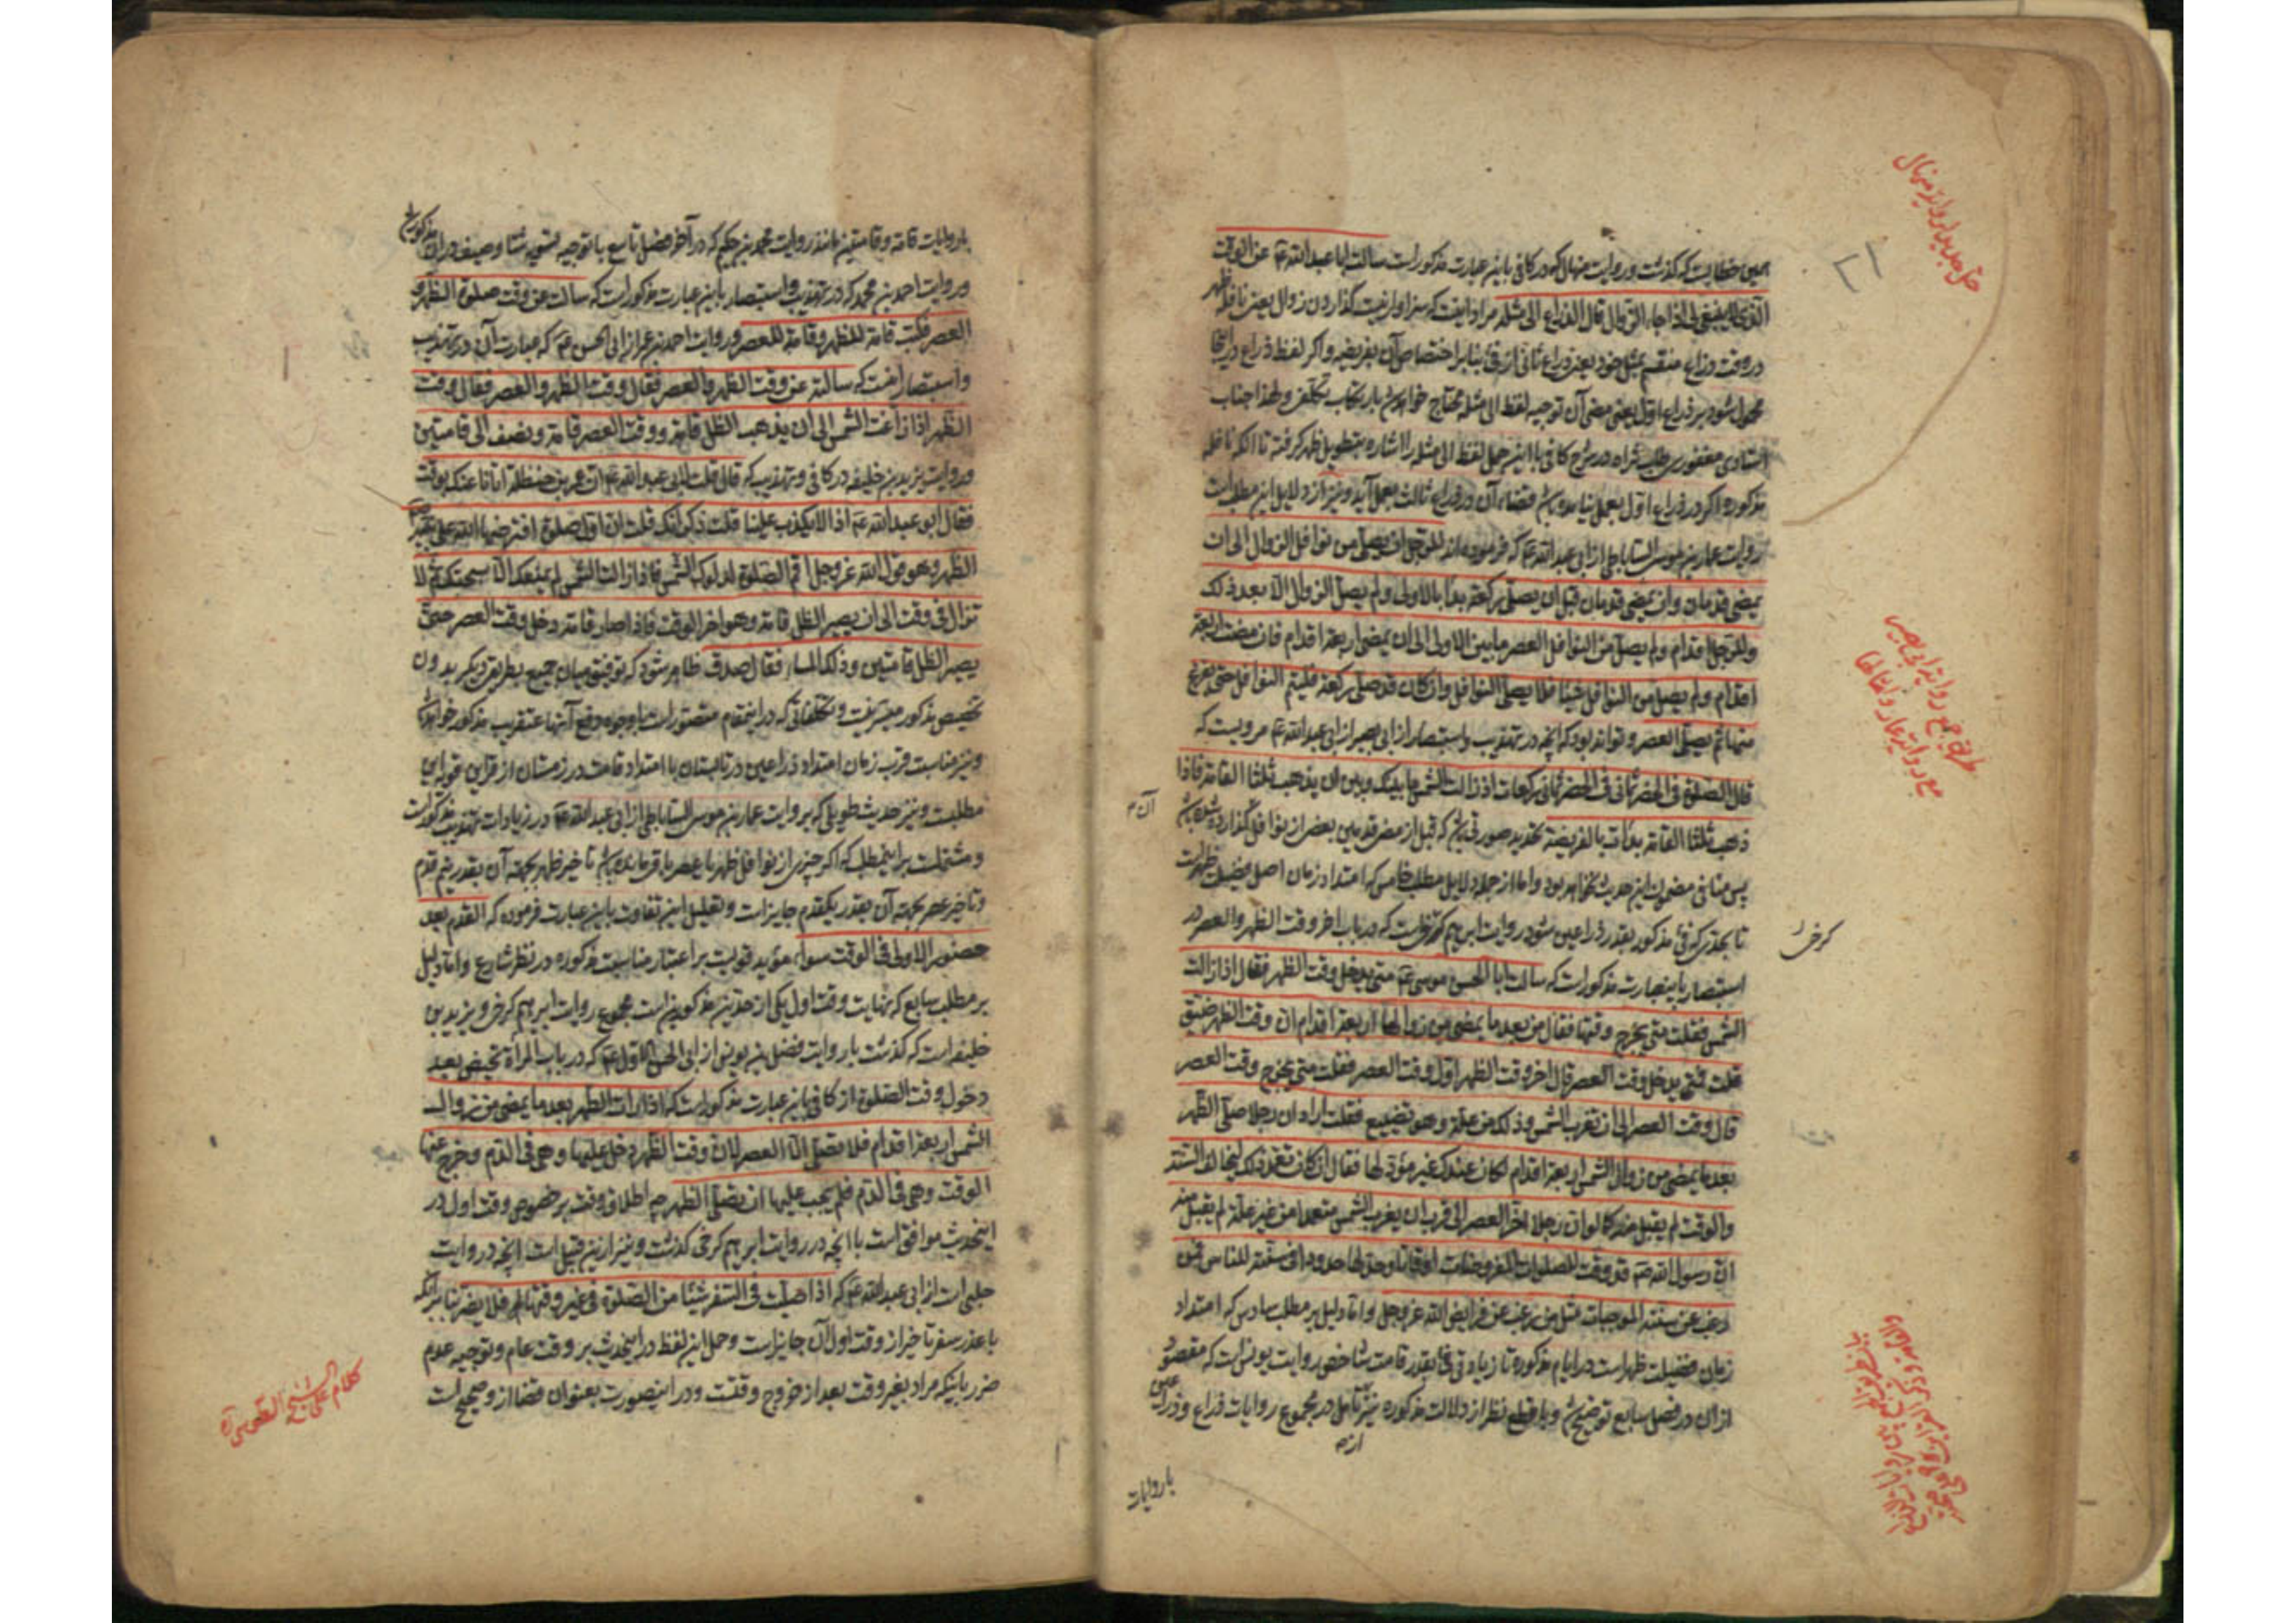 همین خطابست که کذشت و روایت منهال که در کافی باین عبارت مذکور است سالت ابا عبد الله عم عن الوقت
الذی لا ینبغی لی اذا جاء الزوال قال الذراع الی مثله مراد اینست که سزاوار نیست گذاردن زوال یعنی نافله ظهر
در وقت ذراع منقسم بمثل خود یعنی ذراع ثانی از فئ بنابر اختصاص آن بفریضه و اکر لفظ ذراع در اینجا
محمول شود بر ذراع اول یعنی مضی آن توجیه لفظ الی مثله محتاج خواهد بارتکاب تکلف و لهذا جناب
استادی مغفور در شرح کافی با این حمل لفظ الی مثله را اشاره بتطویل ظهر کرفته تا آنکه نافله
مذکوره اکر در ذراع اول بعمل نیامده باشد قضاء آن در ذراع ثالث بعمل آید و نیز از دلایل این مطلب است
روایت عمار بن موسی الساباطی از ابی عبد الله عم که فرموده اند للرجل ان یصلی من نوافل الزوال الی ان
یمضی قدمان و ان مضی قدمان قبل ان یصلی رکعة بدا بالاولی و لم یصل الزوال الا بعد ذلک
وللرجل ان یصلی من النوافل العصر ما بین الاولی الی ان یمضی اربعة اقدام فان مضت اربعة
اقدام و لم یصل من النوافل شیئا فلا یصلی النوافل و ان کان قد صلی رکعة فلیتم النوافل حتی یفرغ
منها ثم یصلی العصر و تواند بود که آنچه در تهذیب و استبصار از ابی بصیر از ابی عبد الله عم مرویست که
قال الصلوة فی الحضر ثمانی رکعات اذا زالت الشمس ما بینک و بین ان یذهب ثلثا القامة فاذا
ذهب ثلثا القامة بدأت بالفریضة بتقدیر صورتی باشد که قبل از مضی قدمین بعضی از نوافل گذارده شده باشد
پس منافی مضمون این حدیث نخواهد بود و اما از جمله دلایل مطلب خامس که امتداد زمان اصل فضیلت ظهر است
تا بحدی که فئ مذکور بقدر ذراعین شود روایت ابرهیم کرخی است که در باب اخر وقت الظهر و العصر در
کرخی
استبصار باینعبارت مذکور است که سالت ابا الحسن موسی عم متی یدخل وقت الظهر فقال اذا زالت
الشمس فقلت متی یخرج وقتها فقال من بعد ما یمضی من زوالها اربعة اقدام ان وقت الظهر ضیق
قلت فمتی یدخل وقت العصر قال اخر وقت الظهر اول وقت العصر فقلت متی یخرج وقت العصر
قال وقت العصر الی ان تغرب الشمس و ذلک من علة و هو تضییع فقلت لو ان رجلا صلی الظهر
بعد ما یمضی من زوال الشمس اربعة اقدام لکان عندک غیر مؤد لها فقال ان کان تعمد ذلک لیخالف السنة
و الوقت لم یقبل منه کما لو ان رجلا اخر العصر الی قرب ان یغرب الشمس متعمدا من غیر علة لم یقبل منه
ان رسول الله ص قد وقت للصلوات المفروضات اوقاتا و حد لها حدودا فی سنته للناس فمن
رغب عن سنته الموجبات مثل من رغب عن فرایض الله عز و جل و اما دلیل بر مطلب سادس که امتداد
زمان فضیلت ظهر است در ایام مذکوره تا زیادتی فئ بقدر قامت شاخص روایت یونس است که مقصود
از ان در فصل سابع توضیح و با قطع نظر از دلالت مذکوره نیز تامل در مجموع روایات ذراع و ذراعین
با روایات
با روایات قامة و قامتین مانند روایت محمد بن حکیم که در آخر فصل تاسع با توجیه تسویه شتا و صیف دران مذکور شد
و روایت احمد بن محمد که در تهذیب و استبصار باین عبارت مذکور است که سالت عن وقت صلوة الظهر و
العصر فکتب قامة للظهر و قامة للعصر و روایت احمد بن عمر از ابی الحسن عم که عبارت آن در تهذیب
و استبصار اینست که سالته عن وقت الظهر و العصر فقال وقت
الظهر اذا زاغت الشمس الی ان یذهب الظل قامة و وقت العصر قامة و نصف الی قامتین
و روایت یزید بن خلیفه در کافی و تهذیب که قال قلت لابی عبد الله عم ان عمر بن حنظلة اتانا عنک بوقت
فقال ابو عبد الله عم اذا لا یکذب علینا قلت ذکر انک قلت ان اول صلوة افترضها الله علی نبیه
الظهر و هو قول الله عز و جل اقم الصلوة لدلوک الشمس فاذا زالت الشمس لم یمنعک الا سبحتک ثم لا
تزال فی وقت الی ان یصیر الظل قامة و هو اخر الوقت فاذا صار قامة دخل وقت العصر حتی
یصیر الظل قامتین و ذلک المساء فقال صدق ظاهر شود که توفیق میان جمیع بطریق دیکر بدون
تخصیص مذکور میسر نیست و تکلفاتی که در اینمقام متصور است با وجوه دفع آنها عنقریب مذکور خواهد شد
و نیز مناسبت قرب زمان امتداد ذراعین در تابستان با امتداد قامت در زمستان از قراین قویه این
مطلبست و نیز حدیث طویلی که بروایت عمار بن موسی الساباطی از ابی عبد الله عم در زیادات تهذیب مذکور است
و مشتملست بر اینمطلب که اکر چیزی از نوافل ظهر یا عصر باقی مانده باشد تا خیر ظهر بجهة آن بقدر نیم قدم
و تاخیر عصر بجهة آن بقدر یکقدم جایز است و تعلیل این تفاوت باین عبارت فرموده که القدم بعد
حضور الاولی فی الوقت سواء مؤید قویست بر اعتبار مناسبت مذکوره در نظر شارع و اما دلیل
بر مطلب سابع که نهایت وقت اول یکی از حدین مذکورین است مجموع روایت ابرهیم کرخی و یزید بن
خلیفه است که کذشت با روایت فضل بن یونس از ابی الحسن الاول عم که در باب المراة تحیض بعد
دخول وقت الصلوة از کافی باین عبارت مذکور است که اذا رات الطهر بعد ما یمضی من زوال
الشمس اربعة اقدام فلا تصلی الا العصر لان وقت الظهر دخل علیها و هی فی الدم و خرج عنها
الوقت و هی فی الدم فلم یجب علیها ان تصلی الظهر چه اطلاق وقت بر خصوص وقت اول در
اینحدیث موافق است با آنچه در روایت ابرهیم کرخی کذشت و نیز ازین قبیل است آنچه در روایت
حلبی است از ابی عبد الله عم که اذا صلیت فی السفر شیئا من الصلوة فی غیر وقتها فلا یضر بنا بر آنکه
با عذر سفر تاخیر از وقت اول آن جایز است و حمل این لفظ در اینحدیث بر وقت عام و توجیه عدم
ضرر باینکه مراد بغیر وقت بعد از خروج وقتست و در اینصورت بعنوان قضا از و صحیح است